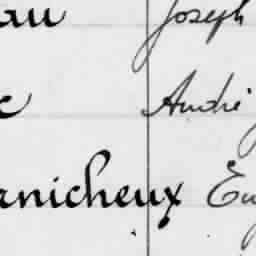 au Joseph
c André
rnicheux Eu